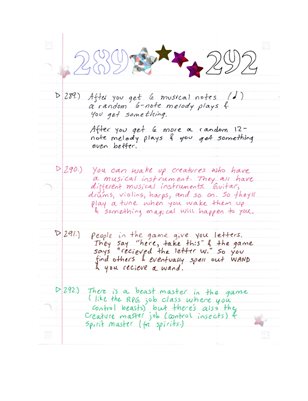 289 292
▷ 289.) After you get 6 musical notes (♩)
a random 6-note melody plays &
you get something.
After you get 6 more a random 12-
note melody plays & you get something
even better.
▷ 290.) You can wake up creatures who have
a musical instrument. They all have
different musical instruments. Guitar,
drums, violins, harps, and so on. So they'll
play a tune when you wake them up
& something magical will happen to you.
▷ 291.) People in the game give you letters.
They say "here, take this" & the game
says "recieved the letter W." So you
find others & eventually spell out WAND
& you recieve a wand.
▷ 292.) There is a beast master in the game
(like the RPG job class where you
control beasts) but there's also the
Creature master job (control insects) &
Spirit master (for spirits)